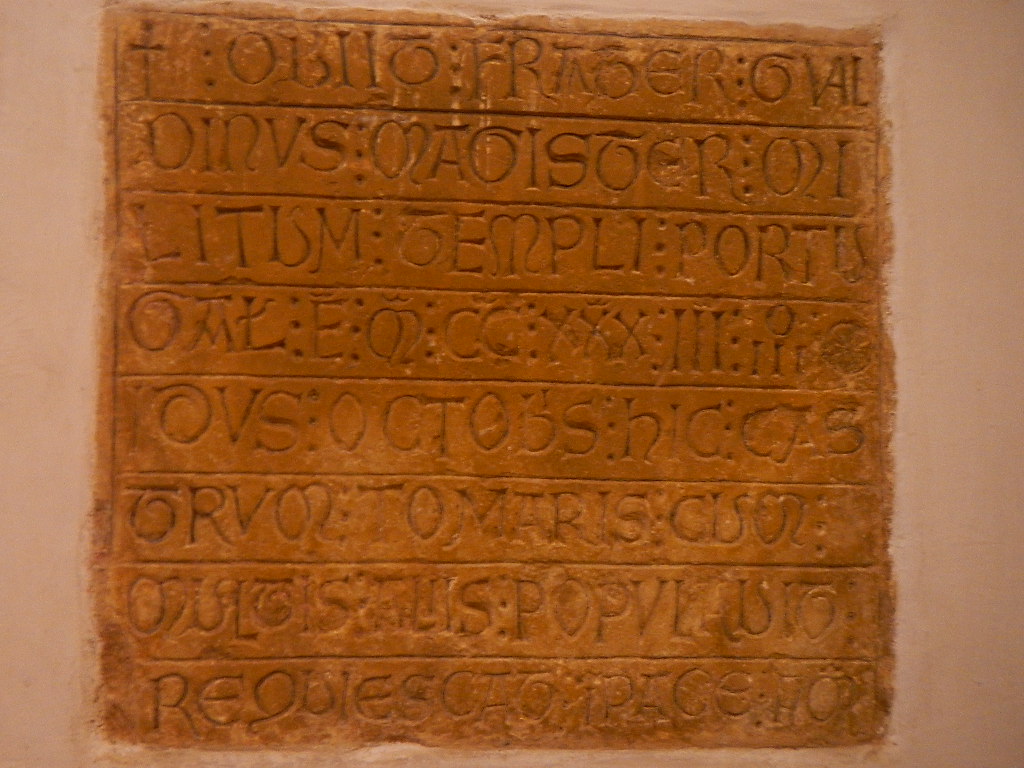 + : OBIIT : FRATER : GVAL
DINVS : MAGISTER : MI
LITUM : TEMPLI : PORTU
GAL : E : M : CC : XXX : III : IIII :
IDVS : OCTOBS : HIC : CAS
TRVM : TOMARIS : CUM :
MULTIS : ALIIS : POPVLAUIT :
REQUIESCAT : I PACE : AM